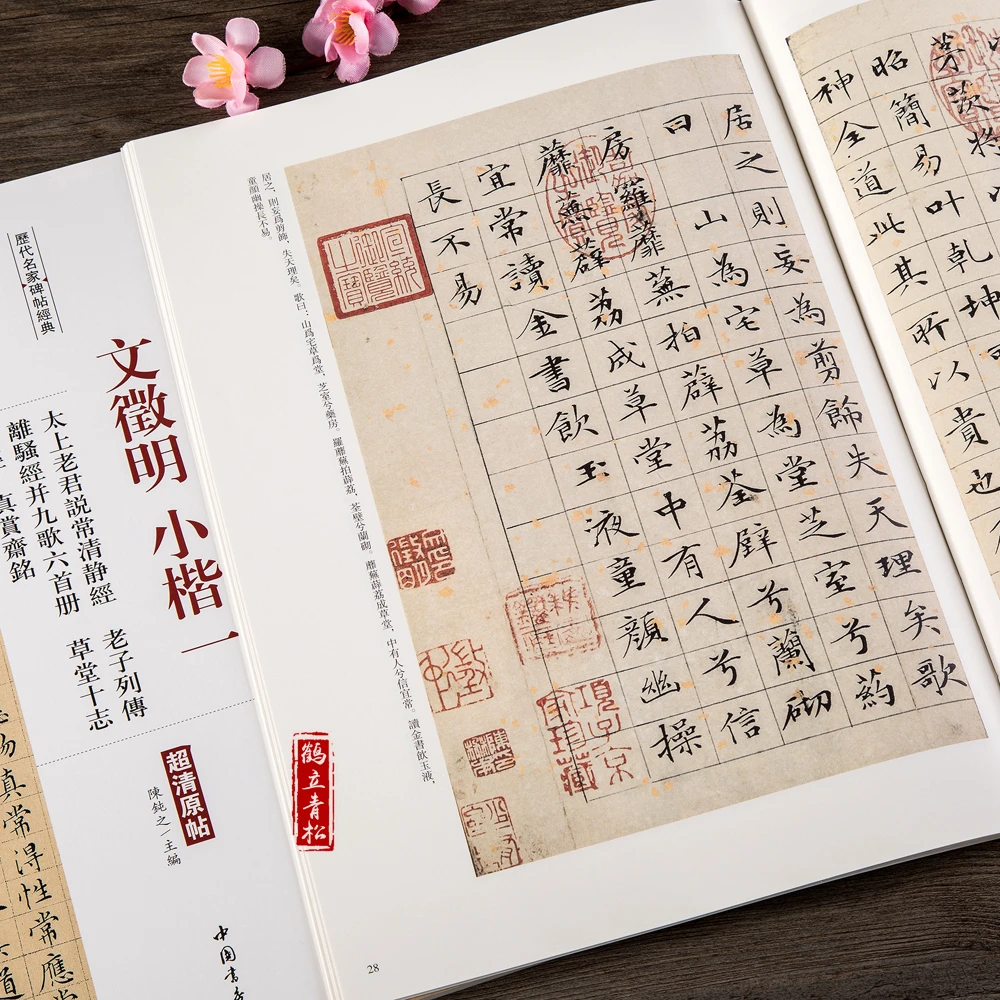 茅茨将
昭簡易叶乾坤
神全道此其所以貴也
居之則妄為剪飾失天理矣歌
曰 山為宅草為堂芝室兮葯
房羅蘼蕪拍薜荔荃壁兮蘭砌
蘼蕪薜荔成草堂中有人兮信
宜常讀金書飲玉液童顏幽操
長不易
項子京家珍藏
居之，則妄爲剪飾，失天理矣。歌曰：山爲宅草爲堂，芝室兮藥房。羅蘼蕪拍薜荔，荃壁兮蘭砌。蘼蕪薜荔成草堂，中有人兮信宜常。讀金書飲玉液，
童顏幽操長不易。
28
鹤立青松
歷代名家碑帖經典
文徵明 小楷一
太上老君説常清静經 老子列傳
離騷經并九歌六首册 草堂十志
真賞齋銘
超清原帖
陳鈍之/主編
中国書
真常得性常應